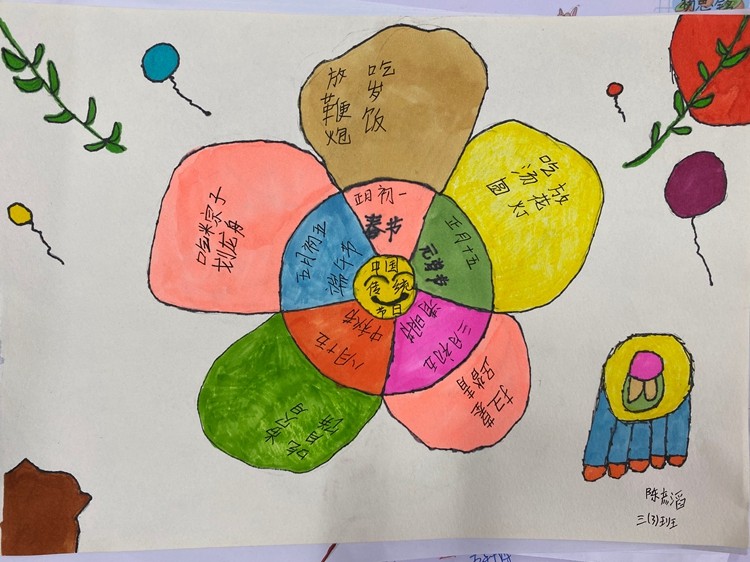 吃岁饭
放鞭炮
正月初一
春节
放花灯
吃汤圆
正月十五
元宵节
中国
传统
节日
五月初五
端午节
吃粽子
划龙舟
八月十五
中秋节
吃月饼
三月初五
清明节
三(3)班